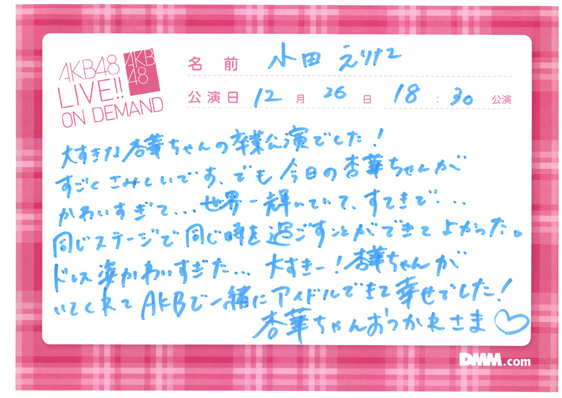 AKB48
LIVE!!
ON DEMAND
AKB
48
名前 小田えりな
公演日 12月26日 18:30公演
大すきな杏華ちゃんの卒業公演でした!
すごくさみしいです、でも今日の杏華ちゃんが
かわいすぎて...世界一輝いていて、すてきで...
同じステージで同じ時を過ごすことができてよかった。
ドレス姿かわいすぎた...大すきー!杏華ちゃんが
いてくれてAKBで一緒にアイドルできて幸せでした!
杏華ちゃんおつかれさま♡
DMM.com